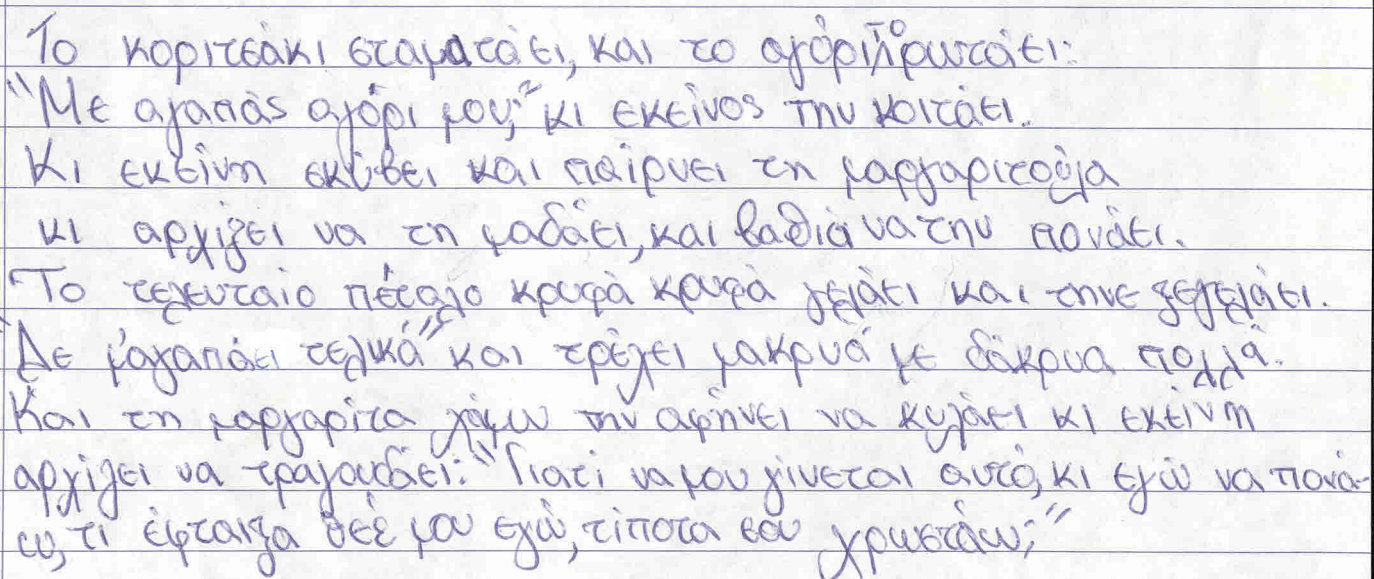 Το κοριτσάκι σταματάει, και το αγόρι το ρωτάει:
"Με αγαπάς αγόρι μου;" κι εκείνος την κοιτάει.
Κι εκείνη σκύβει και παίρνει τη μαργαριτούλα
κι αρχίζει να τη μαδάει, και βαθιά να την πονάει.
Το τελευταίο πέταλο κρυφά κρυφά γελάει και τηνε ξεγελάει.
"Δε μ'αγαπάει τελικά" και τρέχει μακρυά με δάκρυα πολλά.
Και τη μαργαρίτα χάμω την αφήνει να κυλάει κι εκείνη
αρχίζει να τραγουδάει: "Γιατί να μου γίνεται αυτό, κι εγώ να πονά-
ω, τι έφταιξα θεέ μου εγώ, τίποτα σου χρωστάω;"